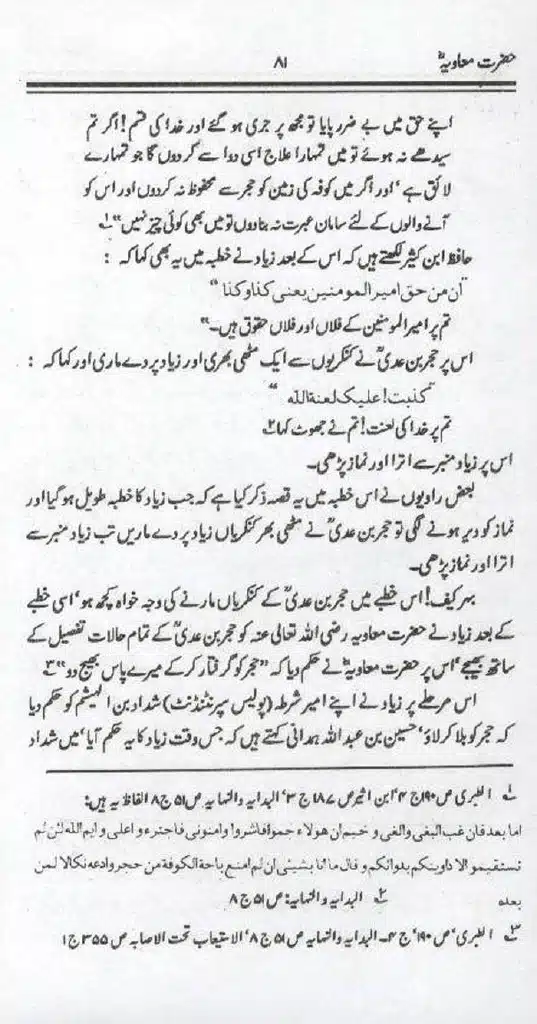 حضرت معاویہؓ ۸۱
اپنے حق میں بے ضرر پایا تو مجھ پر جری ہو گئے اور خدا کی قسم! اگر تم
سیدھے نہ ہوئے تو میں تمہارا علاج اسی دوا سے کردوں گا جو تمہارے
لائق ہے، اور اگر میں کوفہ کی زمین کو حجر سے محفوظ نہ کردوں اور اس کو
آنے والوں کے لئے سامان عبرت نہ بنادوں تو میں بھی کوئی چیز نہیں"۱؎
حافظ ابن کثیرؒ لکھتے ہیں کہ اس کے بعد زیاد نے خطبہ میں یہ بھی کہا کہ :
"ان من حق امیر المومنین یعنی کذا و کذا"
تم پر امیر المومنین کے فلاں اور فلاں حقوق ہیں۔"
اس پر حجر بن عدیؒ نے کنکریوں سے ایک مٹھی بھری اور زیاد پر دے ماری اور کہا کہ :
"کذبت! علیک لعنۃ اللہ"
تم پر خدا کی لعنت! تم نے جھوٹ کہا۲؎
اس پر زیاد منبر سے اترا اور نماز پڑھی۔
بعض راویوں نے اس خطبہ میں یہ قصہ ذکر کیا ہے کہ جب زیاد کا خطبہ طویل ہو گیا اور
نماز کو دیر ہونے لگی تو حجر بن عدیؒ نے مٹھی بھر کنکریاں زیاد پر دے ماریں تب زیاد منبر سے
اترا اور نماز پڑھی۔
بہر کیف! اس خطبے میں حجر بن عدیؒ کے کنکریاں مارنے کی وجہ خواہ کچھ ہو، اسی خطبے
کے بعد زیاد نے حضرت معاویہ رضی اللہ تعالی عنہ کو حجر بن عدیؒ کے تمام حالات تفصیل کے
ساتھ بھیجے، اس پر حضرت معاویہؓ نے حکم دیا کہ "حجر کو گرفتار کرکے میرے پاس بھیج دو"۳؎
اس مرحلے پر زیاد نے اپنے امیر شرطہ (پولیس سپرنٹنڈنٹ) شداد بن الہیشم کو حکم دیا
کہ حجر کو بلا کر لاؤ، حسین بن عبد اللہ ہمدانی کہتے ہیں کہ جس وقت زیاد کا یہ حکم آیا، میں شداد
۱؎ الطبری ص ۱۹۰ ج ۴، ابن اثیر ص ۱۸۷ ج ۳، البدایہ والنہایہ ص ۵۱ ج ۸ الفاظ یہ ہیں:
اما بعد فان غب البغی والغی و خیم ان هولاء جموا فاشروا وامنونی فاجترء و اعلی و ایم اللہ لئن لم
تستقیموا لا داوینکم بدوائکم و قال ما انا بشیئی ان لم امنع باحۃ الکوفۃ من حجر وادعه نکالا لمن
بعدہ ۲؎ البدایہ والنہایہ: ص ۵۱ ج ۸
۳؎ الطبری، ص ۱۹۰، ج ۴۔ البدایہ والنہایہ ص ۵۱ ج ۸، الاستیعاب تحت الاصابہ ص ۳۵۵ ج ۱